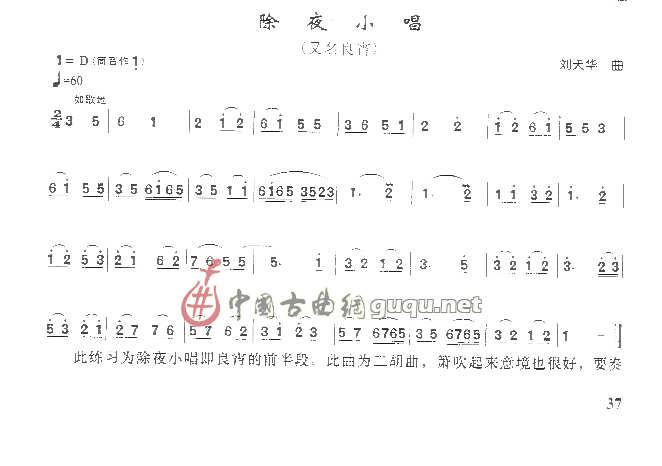 除夜小唱
(又名良宵)
1= D (筒音作1)
♩=60
刘天华 曲
如歌地
2/4 3 5 | 6 1 | 2 1 2 | 6 1 5 5 | 3 6 5 1 | 2 2 | 1 2 6 1 | 5 5 3 |
6 1 5 5 | 3 5 6 1 6 5 | 3 5 1 1 | 6 1 6 5 3 5 2 3 | 1. 2 | 1. 2 | 1 1 3 2 | 1. 2 |
1 2 5 3 | 2 1 6 2 | 7 6 5 5 | 5. 1 | 3 2 1 2 | 3. 5 | 3 2 1 2 | 3. 2 3 |
5 3 2 1 | 2 7 7 6 | 5 7 6 2 | 3 1 2 3 | 5 7 6 7 6 5 | 3 5 6 7 6 5 | 3 2 1 2 | 1 – |
中国古曲網 guqu.net
此练习为除夜小唱即良宵的前半段。此曲为二胡曲，箫吹起来意境也很好，要奏
37